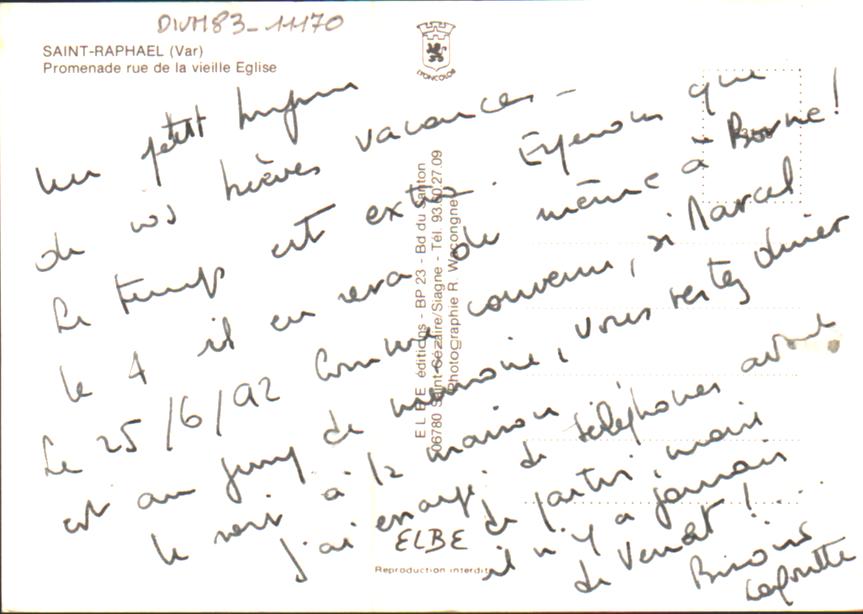 DIVM83-11170
SAINT-RAPHAEL (Var)
Promenade rue de la vieille Eglise
LYONCOLOR
Un petit
de nos brèves vacances -
Le temps est extra. Espérons que
le 4 il en sera de même à Borne!
Le 25/6/92 Comme convenu, si Marcel
est au de mémoire, vous restez dîner
le soir à la maison
J'ai essayé de téléphoner avant
de partir, mais
il n'y a jamais
de Venot!...
Bisous
ELBE éditions - BP 23 - Bd du Santon
06780 Saint-Cézaire/Siagne - Tél. 93.60.27.09
Photographie R. Wacongne
ELBE
Reproduction interdite